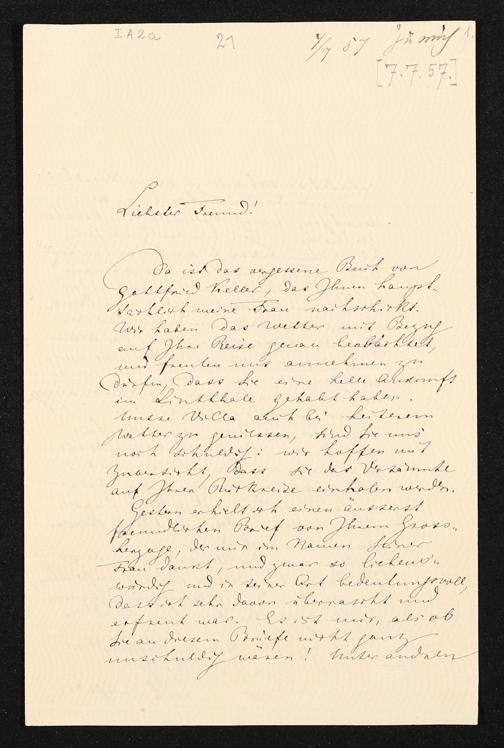 I A 2a 21 7/7 57 Zürich 1.
[7.7.57.]
Liebster Freund!
Da ist das vergessene Buch von
Gottfried Keller, das Ihnen haupt-
sächlich meine Frau nachschickt.
Wir haben das Wetter mit Bezug
auf Ihre Reise genau beobachtet,
und freuten uns annehmen zu
dürfen, dass Sie eine helle Ankunft
im Linththale gehabt haben.
Unsre Villa auch bei heiterem
Wetter zu geniessen, sind Sie uns
noch schuldig: wir hoffen mit
Zuversicht, dass Sie das Versäumte
auf Ihrer Rückreise einholen werden.
Gestern erhielt ich einen äusserst
freundlichen Brief von Ihrem Gross-
herzoge, der mir im Namen seiner
Frau dankt, und zwar so liebens-
würdig und in seiner Art bedeutungsvoll,
dass ich sehr davon überrascht und
erfreut war. Es ist mir, als ob
Sie an diesem Briefe nicht ganz
unschuldig wären! Unter andrem